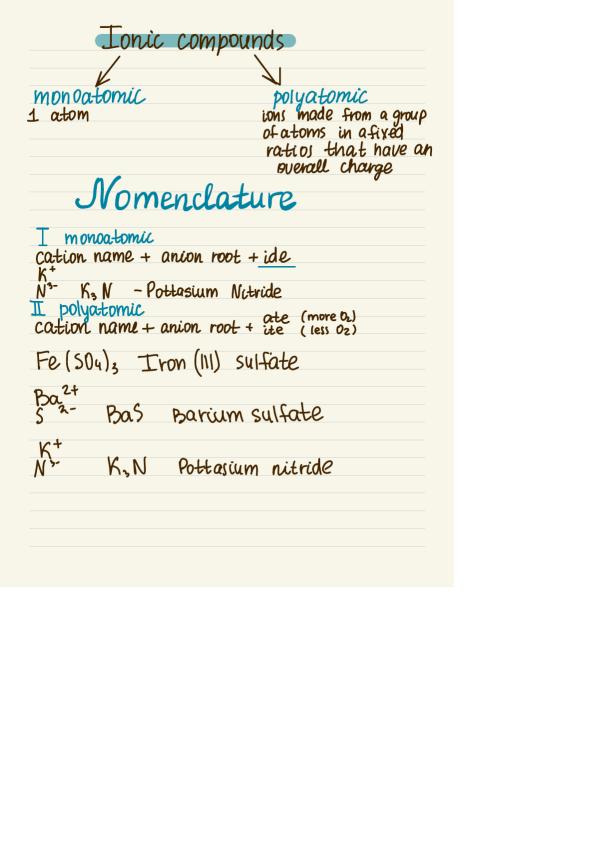 Ionic compounds
monoatomic polyatomic
1 atom ions made from a group
of atoms in a fixed
ratios that have an
overall charge
Nomenclature
I monoatomic
cation name + anion root + ide
K⁺
N³⁻ K₃N - Pottasium Nitride
II polyatomic
cation name + anion root + ate (more O₂)
ite (less O₂)
Fe(SO₄)₃ Iron (III) sulfate
Ba²⁺
S²⁻ BaS Barium sulfate
K⁺
N³⁻ K₃N Pottasium nitride